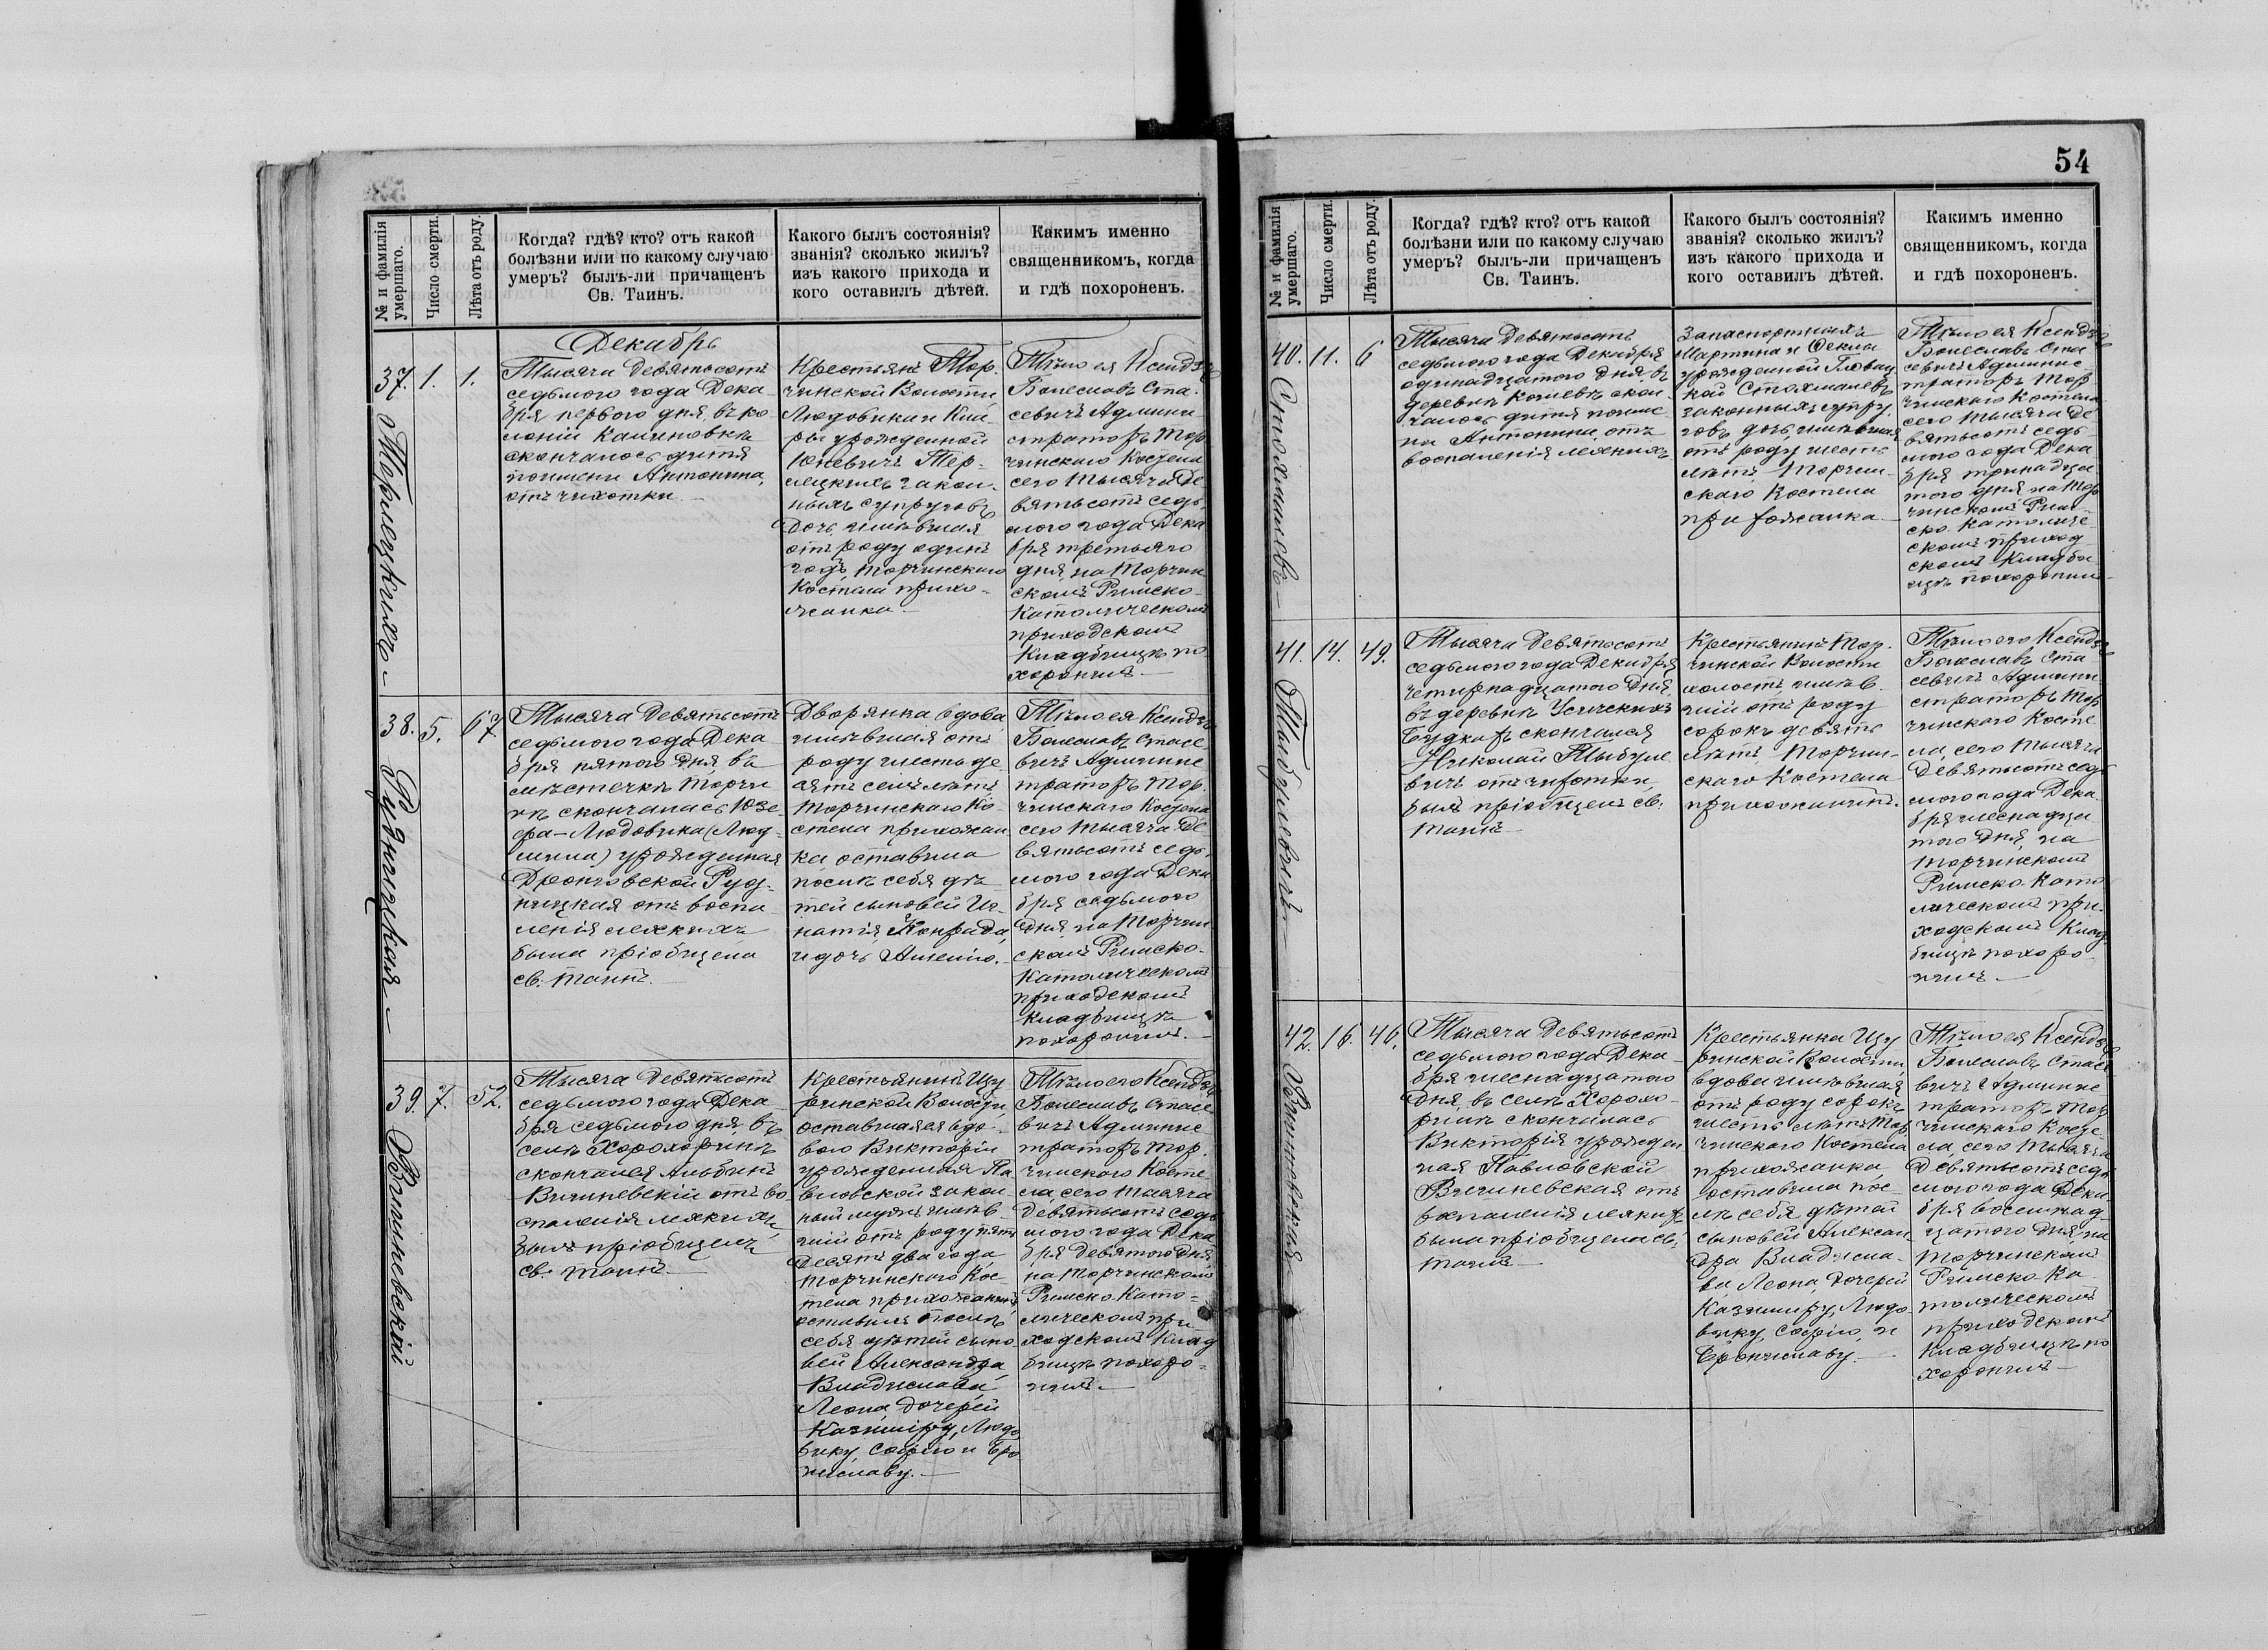 № и фамилія
умершаго.
Число смерти.
Лѣта отъ роду.
Когда? гдѣ? кто? отъ какой
болѣзни или по какому случаю
умеръ? былъ-ли причащенъ
Св. Таинъ.
Какого былъ состоянія?
званія? сколько жилъ?
изъ какого прихода и
кого оставилъ дѣтей.
Какимъ именно
священникомъ, когда
и гдѣ похороненъ.
37.
1.
1.
Декабрь
Тысяча девятьсотъ
седьмого года Дека
бря первого дня, въ ко
лоніи Калиновкѣ
скончалось дитя
поимени Антонина,
отъ чихотки
Крестьянъ Тор
чинской Волости
Людовика и Кла
ры урожденной
Юневичъ Тер
лецкихъ закон
ныхъ супруговъ
дочь, имѣвшая
отъ роду одинъ
годъ, Торчинскаго
Костела прихо
жанка
Тѣло ея Ксендзъ
Болеславъ Ста
севичъ Админи
страторъ Тор
чинскаго Костела
сего тысяча де
вятьсотъ седь
мого года Дека
бря третьяго
дня, на Торчин
скомъ Римско
Католическомъ
приходскомъ
Кладбищѣ по
хоронилъ.
38.
5.
67
Рудницкая
Тысяча девятьсотъ
седьмого года Дека
бря пятого дня, въ
мѣстечкѣ Торчи
нѣ скончалась Юзе
фа-Людовика (Люд
мила) урожденная
Дронговской Руд
ницкая отъ воспа
ленія легкихъ
была пріобщена
св. таинъ.
Дворянка вдова,
имѣвшая отъ
роду шестьде
сятъ семь лѣтъ
Торчинскаго Ко
стела прихожан
ка оставила
послѣ себя дѣ
тей сыновей Иг
натія, Конрада,
и дочь Амелію.
Тѣло ея Ксендзъ
Болеславъ Стасе
вичъ Админис
траторъ Тор
чинскаго Костела
сего тысяча де
вятьсотъ седь
мого года Дека
бря седьмого
дня, на Торчин
скомъ Римско
Католическомъ
приходскомъ
кладбищѣ
похоронилъ.
39.
7.
52.
Вишневскій
Тысяча девятьсотъ
седьмого года Дека
бря седьмого дня, въ
селѣ Хорохоринѣ
скончался Альбинъ
Вишневскій отъ во
спаленія легкихъ,
былъ пріобщенъ
св. таинъ
Крестьянинъ Щу
ринской Волости
оставшаяся вдо
вою Викторіи
урожденная Па
вловской закон
ный мужъ имѣв
шій отъ роду пять
десятъ два года
Торчинскаго Кос
тела прихожанинъ
оставилъ послѣ
себя дѣтей сыно
вей Александра,
Владислава,
Леона, дочерей
Казиміру, Людо
вику, Софію и Бро
ниславу.
Тѣло его Ксендзъ
Болеславъ Стасе
вичъ Админис
траторъ Тор
чинскаго Косте
ла, сего тысяча
девятьсотъ седь
мого года Дека
бря девятого дня,
на Торчинскомъ
Римско Като
лическомъ при
ходскомъ клад
бищѣ похоро
нилъ.
54
№ и фамилія
умершаго.
Число смерти.
Лѣта отъ роду.
Когда? гдѣ? кто? отъ какой
болѣзни или по какому случаю
умеръ? былъ-ли причащенъ
Св. Таинъ.
Какого былъ состоянія?
званія? сколько жилъ?
изъ какого прихода и
кого оставилъ дѣтей.
Какимъ именно
священникомъ, когда
и гдѣ похороненъ.
40.
11.
6
Тысяча девятьсотъ
седьмого года Декабря
одинадцатого дня, въ
деревнѣ скон
чалось дитя поиме
ни Антонина, отъ
воспаленія легкихъ
Запаспортныхъ
Мартина и Феклы
урожденной
законныхъ супру
говъ дочь, имѣвшая
отъ роду шесть
лѣтъ, Торчин
скаго Костела
прихожанка
Тѣло ея Ксендзъ
Болеславъ Ста
севичъ Админис
траторъ Тор
чинскаго Костела
сего тысяча де
вятьсотъ седь
мого года Дека
бря тринадца
того дня на Тор
чинскомъ Рим
ско Католиче
скомъ приход
скомъ Кладби
щѣ похоронилъ
41.
14.
49.
Тысяча девятьсотъ
седьмого года Декабря
четирнадцатого дня,
въ деревнѣ Усическихъ
Будкахъ скончался
Николай
отъ чихотки,
былъ пріобщенъ св.
таинъ
Крестьянинъ Тор
чинской Волости
холостъ, имѣв
шій отъ роду
сорокъ девять
лѣтъ, Торчин
скаго Костела
прихожанинъ.
Тѣло его Ксендзъ
Болеславъ Ста
севичъ Админи
страторъ Тор
чинскаго Косте
ла, сего тысяча
девятьсотъ седь
мого года Дека
бря шеснадца
того дня, на
Торчинскомъ
Римско Като
лическомъ при
ходскомъ Клад
бищѣ похоро
нилъ
42.
16.
46.
Вишневская
Тысяча девятьсотъ
седьмого года Дека
бря шеснадцатого
дня, въ селѣ Хорохо
ринѣ скончалась
Викторія урожден
ная Павловской
Вишневская отъ
воспаленія легкихъ
была пріобщена св.
таинъ
Крестьянка Щу
ринской Волости,
вдова имѣвшая
отъ роду сорокъ
шесть лѣтъ Тор
чинскаго Костела
прихожанка
оставила пос
лѣ себя дѣтей
сыновей Алексан
дра Владисла
ва, Леона, дочерей
Казимиру, Людо
вику, Софію, и
Брониславу.
Тѣло ея Ксендзъ
Болеславъ Стасе
вичъ Админис
траторъ Тор
чинскаго Косте
ла, сего тысяча
девятьсотъ седь
мого года Дека
бря восемнад
цатого дня, на
Торчинскомъ
Римско Ка
толическомъ
приходскомъ
кладбищѣ по
хоронилъ